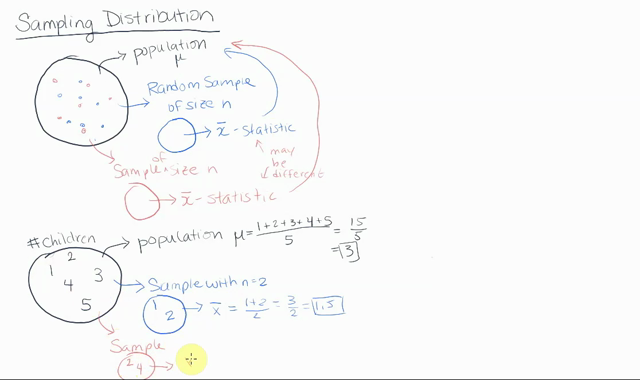 Sampling Distribution
population
μ
Random Sample
of size n
x̄ - statistic
may
be
different
of
Sample size n
x̄ - statistic
# children
population μ = 1+2+3+4+5 / 5 = 15 / 5
= 3
2
1 3
4
5
Sample with n=2
1
2
x̄ = 1+2 / 2 = 3 / 2 = 1.5
Sample
2 4